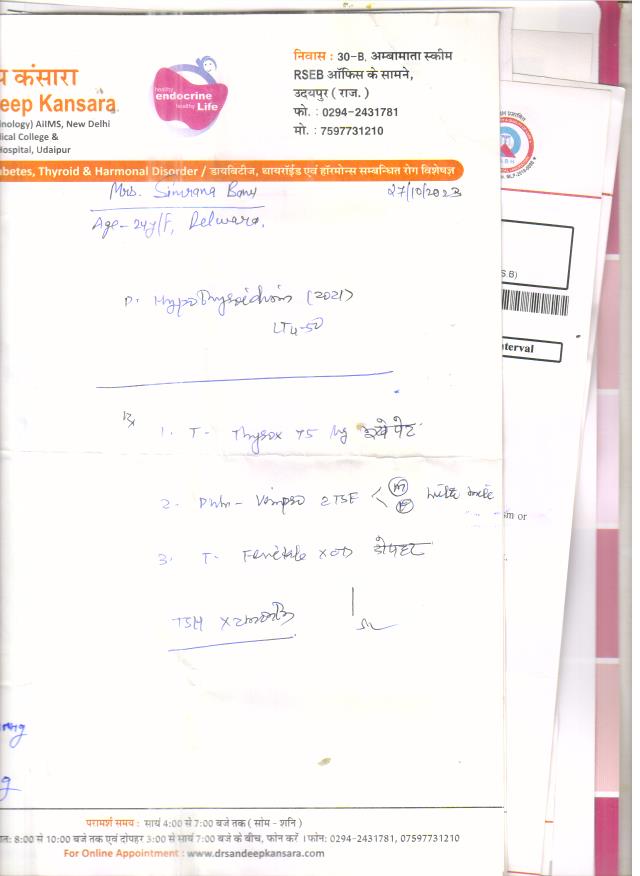 य कंसारा
eep Kansara
nology) AIIMS, New Delhi
ical College &
ospital, Udaipur
healthy
endocrine
healthy Life
निवास : 30-B, अम्बामाता स्कीम
RSEB ऑफिस के सामने,
उदयपुर ( राज. )
फो. : 0294-2431781
मो. : 7597731210
abetes, Thyroid & Harmonal Disorder / डायबिटीज, थायरॉईड एवं हॉरमोन्स सम्बन्धित रोग विशेषज्ञ
Mrs. Simrana Banu
27/10/2023
Age- 24y/F, Delwara.
Hypothyroidism (2021)
LT4-50
Rx
1. T- Thyrox 75 mg
2. 2 TSF < M E with milk
3. T- X OD दोपहर
TSH X 2 months
S.B)
terval
sm or
परामर्श समय : सायं 4:00 से 7:00 बजे तक ( सोम - शनि )
तः 8:00 से 10:00 बजे तक एवं दोपहर 3:00 से सायं 7:00 बजे के बीच, फोन करें । फोन: 0294-2431781, 07597731210
For Online Appointment : www.drsandeepkansara.com